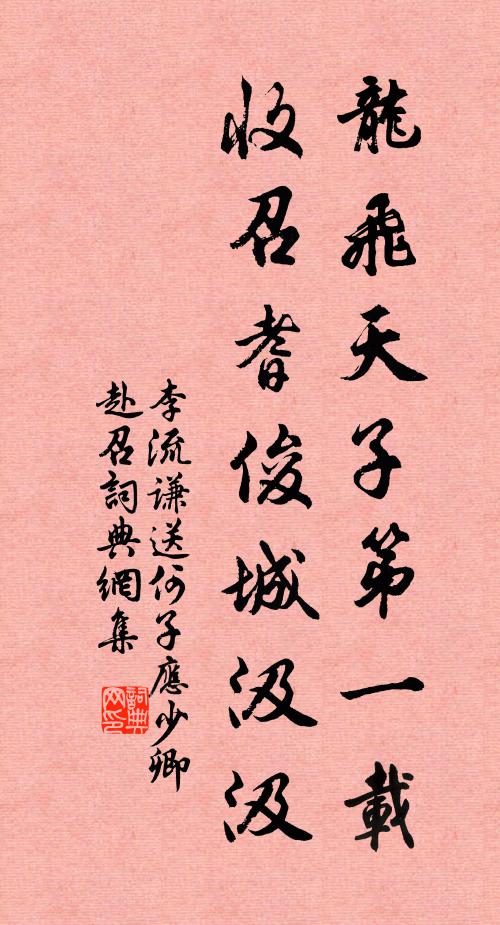 龍飛天子第一載
收召耆俊城汲汲
李流謙送何子應少卿
赴召詞典網集
詞典网印